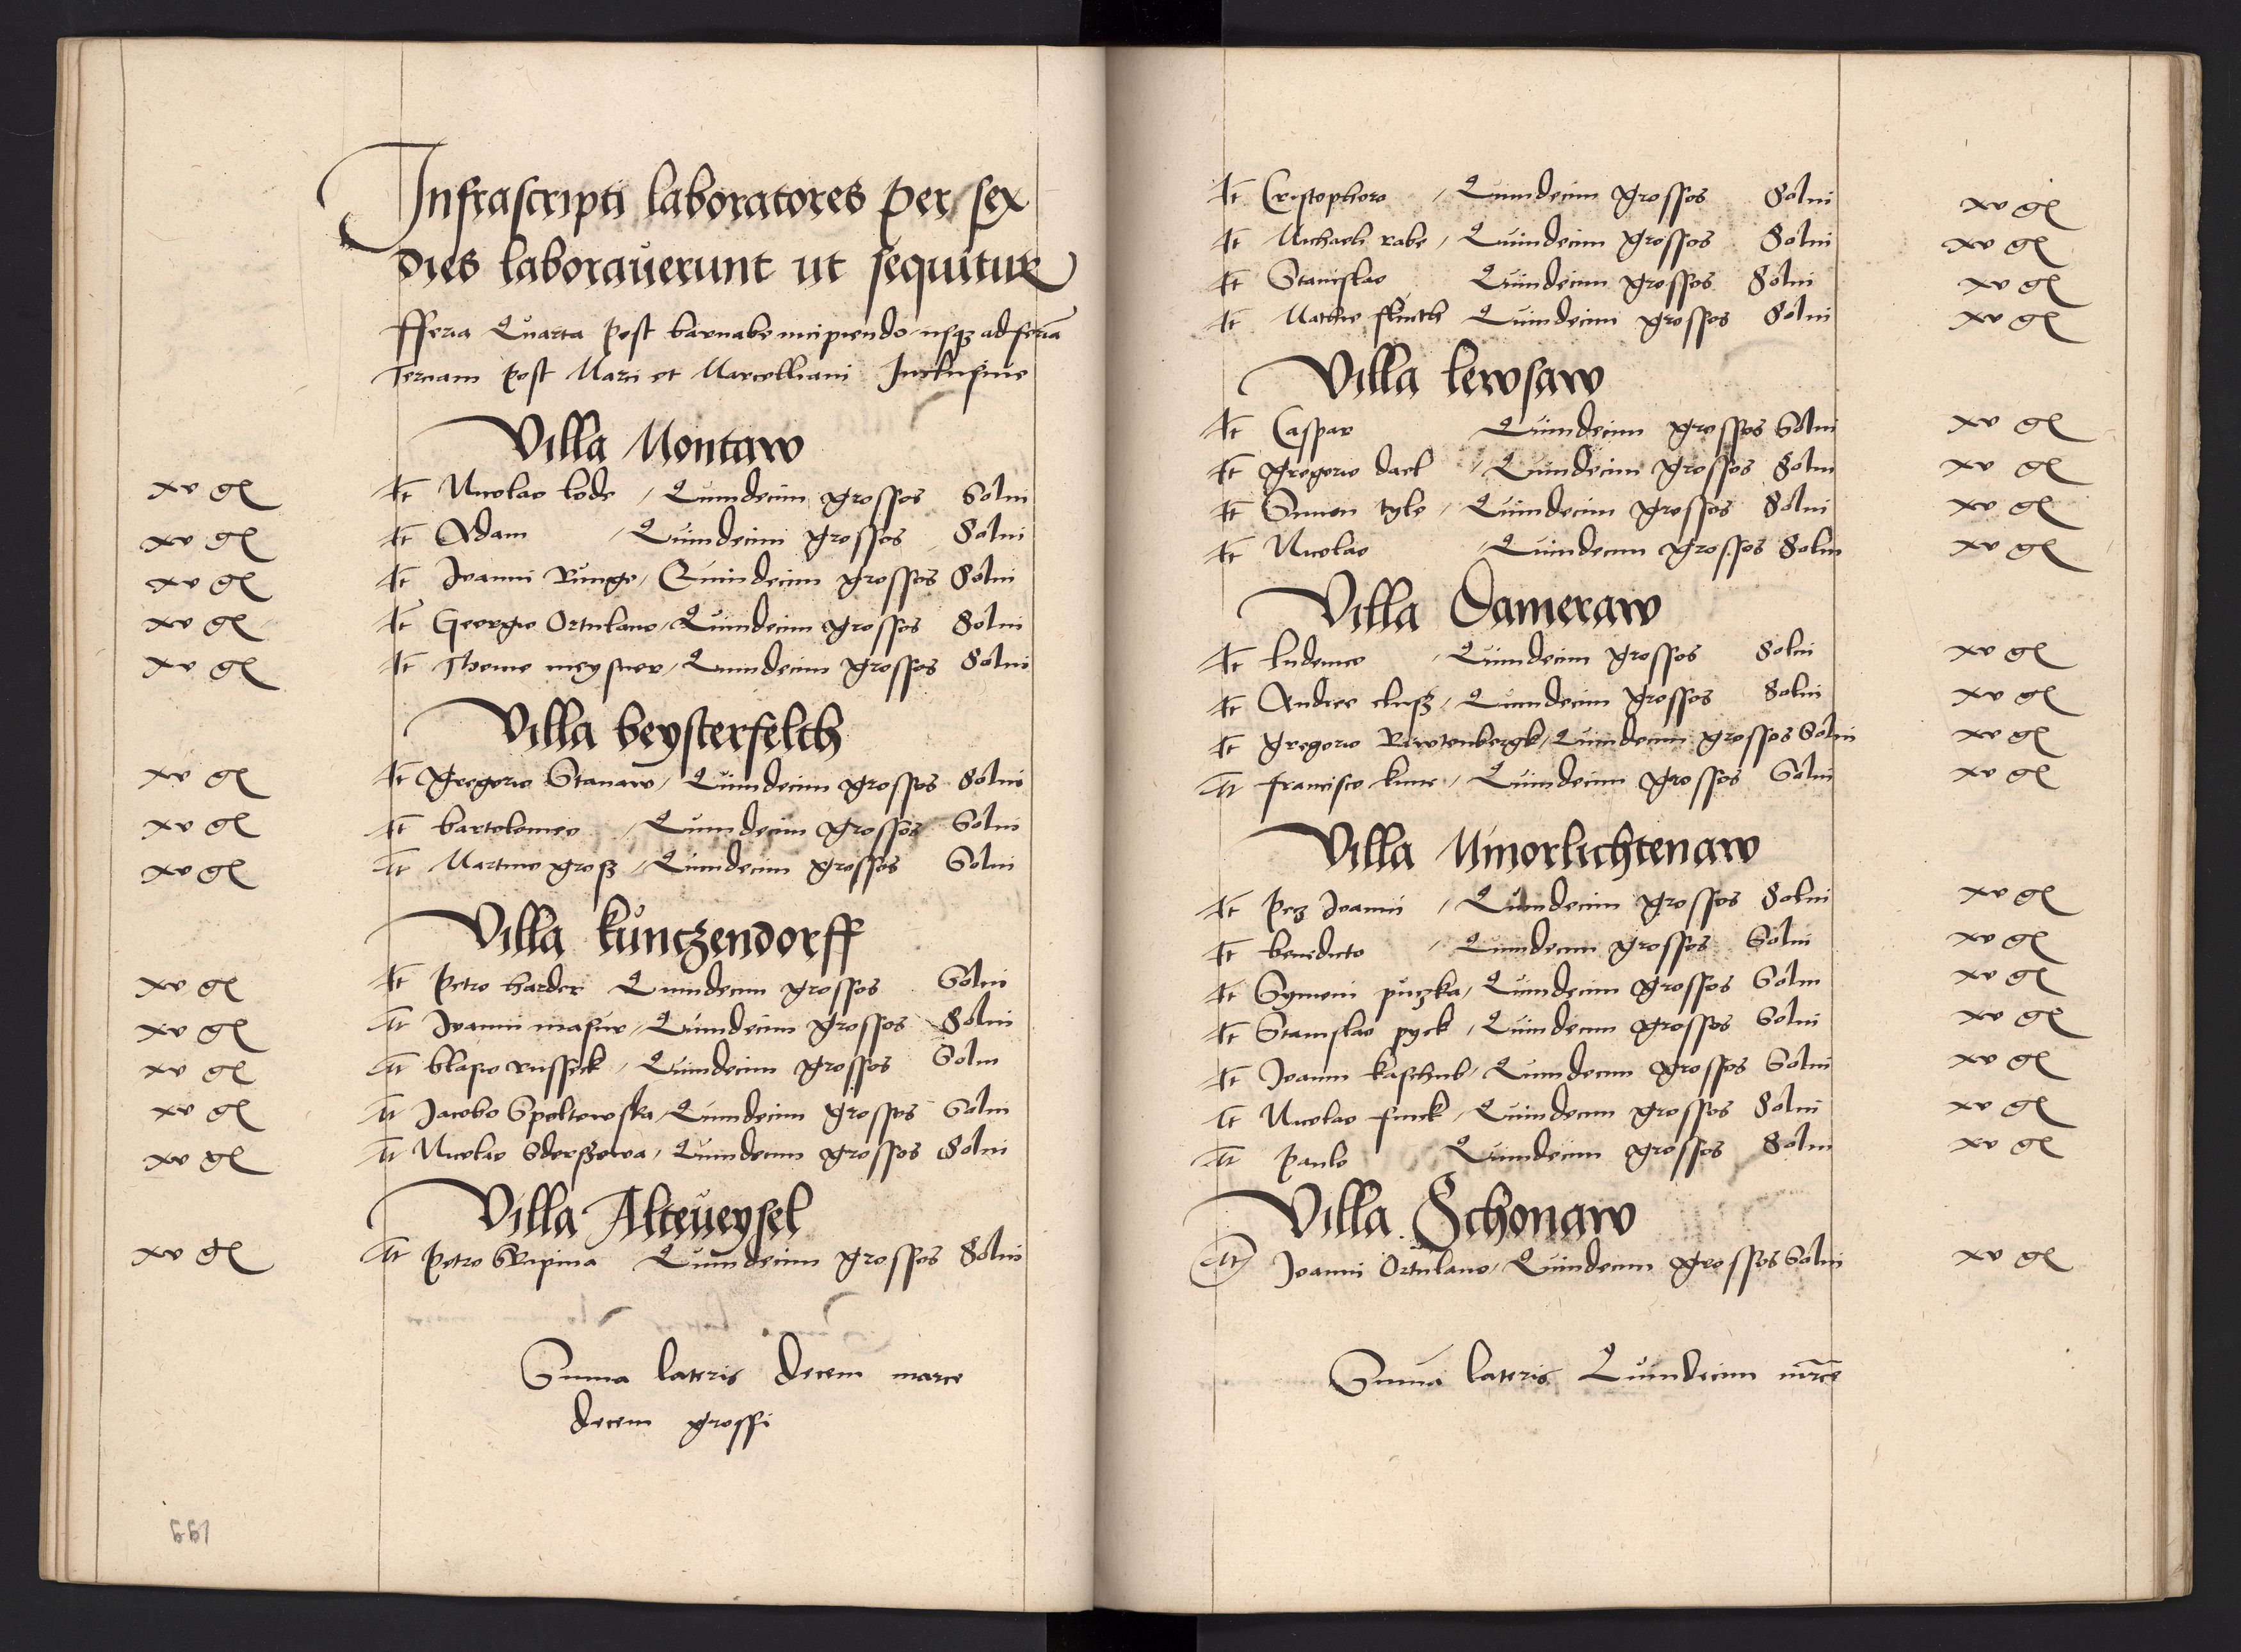 Infrascripti laboratores per sex
dies laboraverunt ut sequitur
fferia Quarta post barnabe incipiendo usq3 ad feria
Terciam post Marci et Marcelliani Inclusive
Villa Montaw
xv gl It Nicolao lode / Quindecim grossos Solui
xv gl It Adam / Quindecim grossos Solui
xv gl It Joanni Runge / Quindecim grossos Solui
xv gl It Georgio Ortulano / Quindecim grossos Solui
xv gl It Thome meysner / Quindecim grossos Solui
Villa beysterfelth
xv gl It Gregorio Stanaw / Quindecim grossos Solui
xv gl It bartolomeo / Quindecim grossos Solui
xv gl It Martino groß / Quindecim grossos Solui
Villa kunczendorff
xv gl It Petro harder Quindecim grossos Solui
xv gl It Joanni masur / Quindecim grossos Solui
xv gl It blasio russeck / Quindecim grossos Solui
xv gl It Jacobo Spoltowska / Quindecim grossos Solui
xv gl It Nicolao / Quindecim grossos Solui
Villa Alteveysel
xv gl It Petro Skripina Quindecim grossos Solui
Suma lateris decem marce
decem grossi
661
It Cristophoro / Quindecim grossos Solui xv gl
It Michaeli rabe / Quindecim grossos Solui xv gl
It Stanislao Quindecim grossos Solui xv gl
It Mathie Quindecim grossos Solui xv gl
Villa lewsaw
It Caspar Quindecim grossos Solui xv gl
It gregorio dael / Quindecim grossos Solui xv gl
It Simon tyle / Quindecim grossos Solui xv gl
It Nicolao / Quindecim grossos Solui xv gl
Villa Dameraw
It / Quindecim grossos Solui xv gl
It Andree / Quindecim grossos Solui xv gl
It gregorio Rewtenbergk / Quindecim grossos Solui xv gl
It francisco kune / Quindecim grossos Solui xv gl
Villa Minorlichtenaw
It Joanni / Quindecim grossos Solui xv gl
It benedicto / Quindecim grossos Solui xv gl
It Symoni puczka / Quindecim grossos Solui xv gl
It Stanislao pyck / Quindecim grossos Solui xv gl
It Joanni kaschub / Quindecim grossos Solui xv gl
It Nicolao funck / Quindecim grossos Solui xv gl
It Paulo Quindecim grossos Solui xv gl
Villa Schonaw
It Joanni Ortulano / Quindecim grossos Solui xv gl
Suma lateris Quindecim mrce